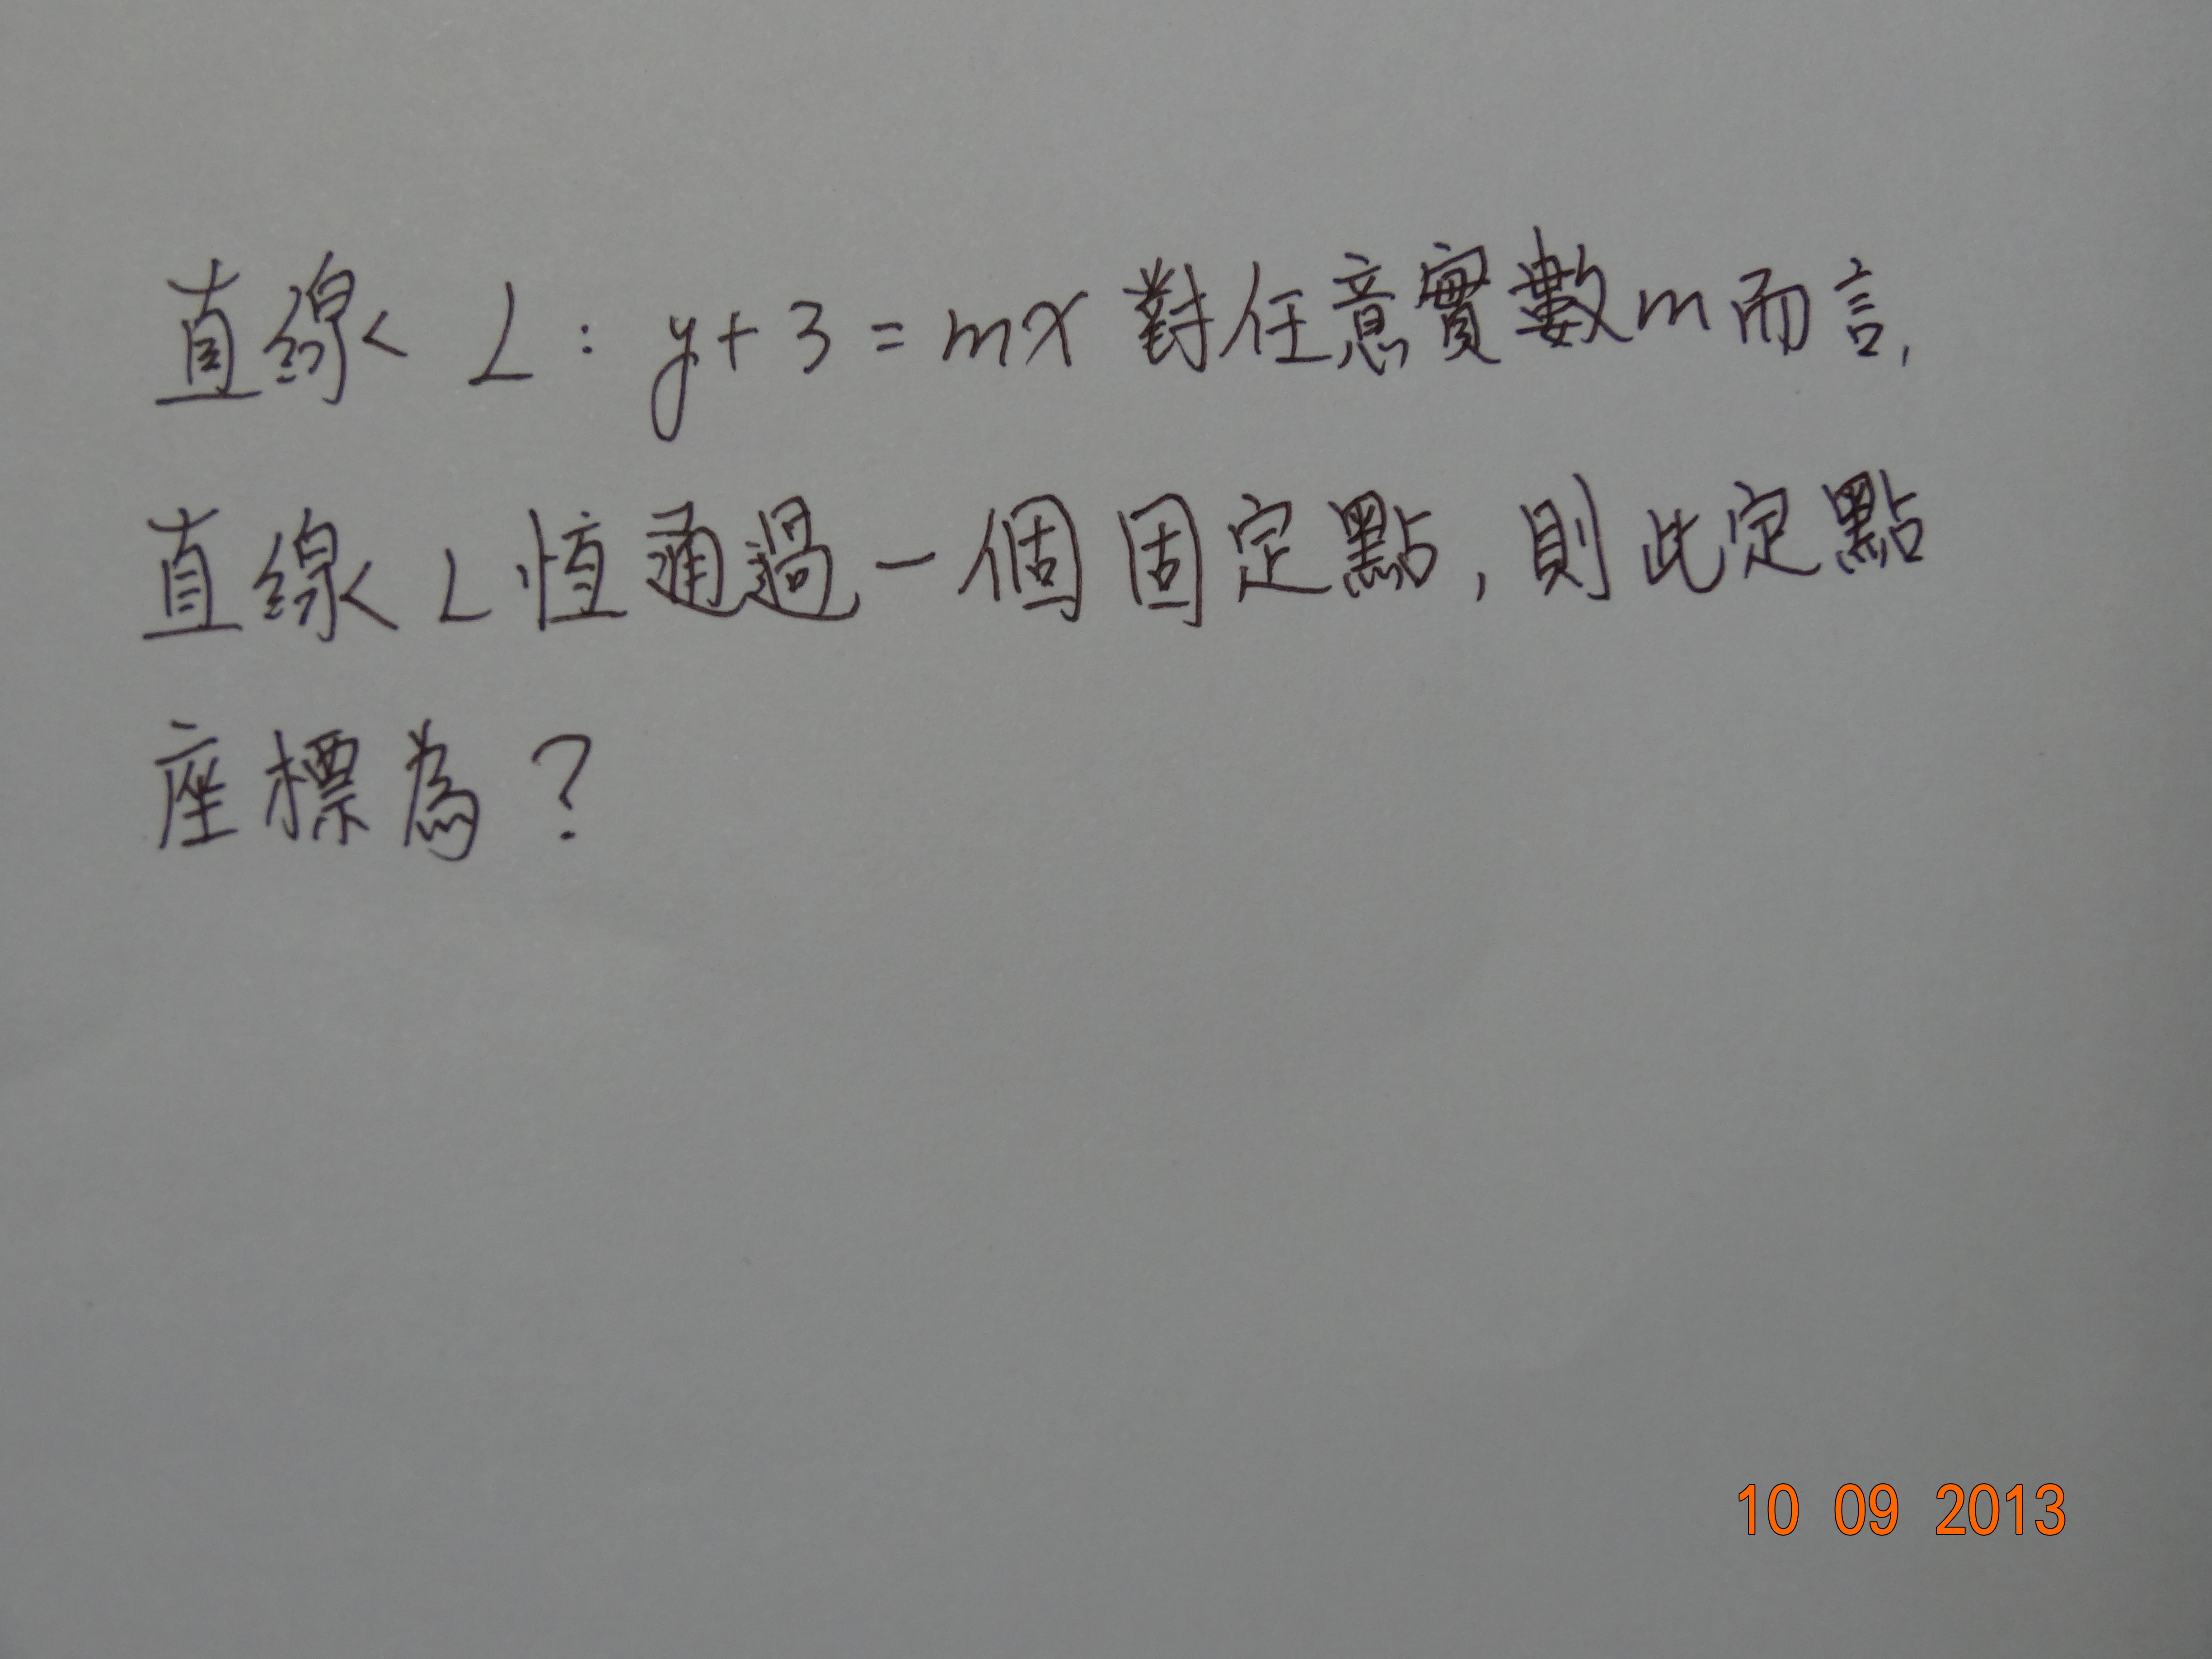 直線 L：y+3=mx 對任意實數m而言,
直線 L 恆通過一個固定點, 則此定點
座標為？
10 09 2013